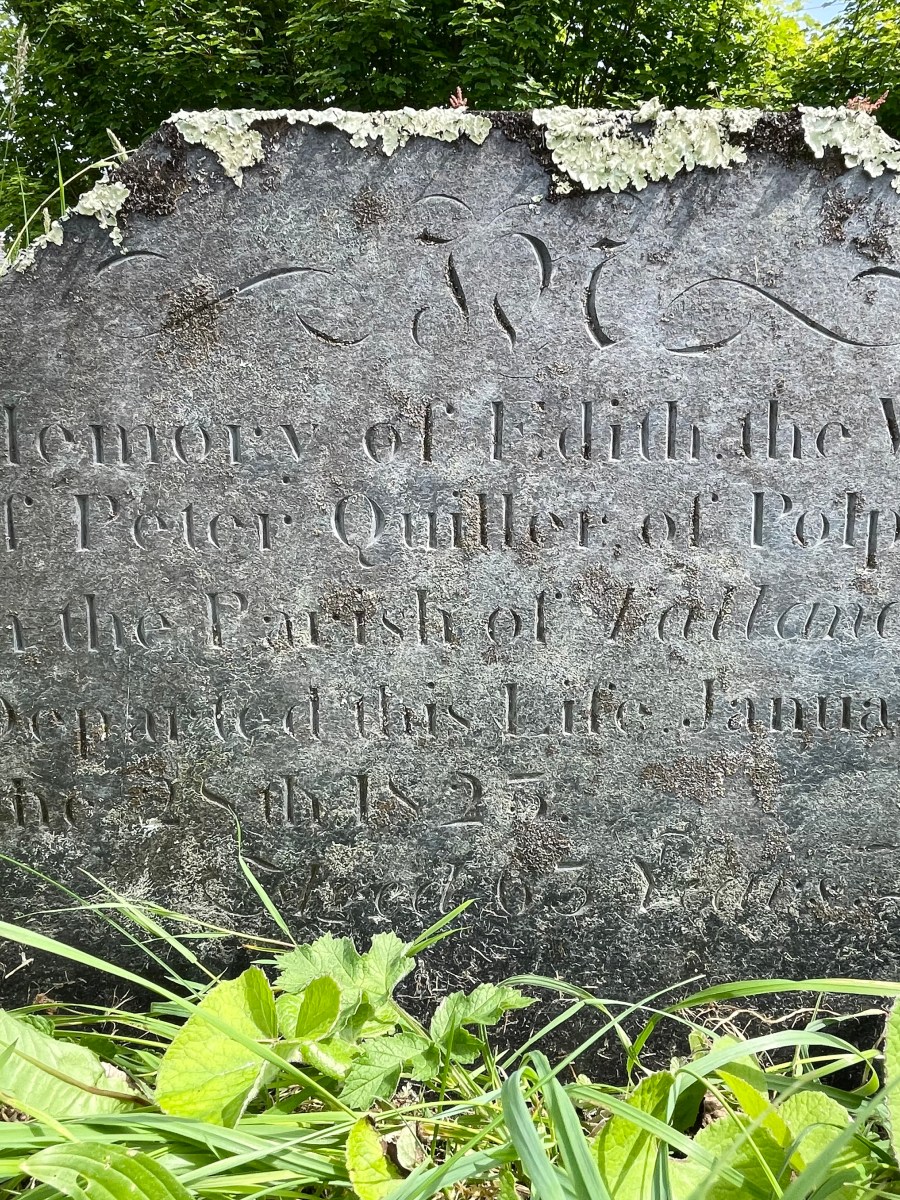 Memory of Edith the
of Peter Quiller of Polp
in the Parish of Talland
Departed this Life Janua
the 28th 1825
Aged 65 Years